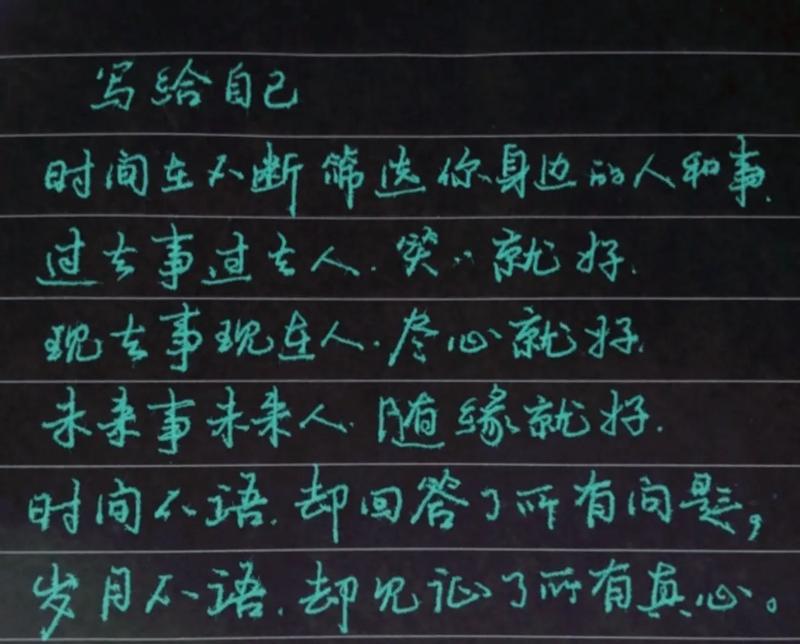 写给自己
时间在不断筛选你身边的人和事.
过去事过去人.笑笑就好.
现去事现在人.尽心就好.
未来事未来人.随缘就好.
时间不语.却回答了所有问题，
岁月不语.却见证了所有真心。